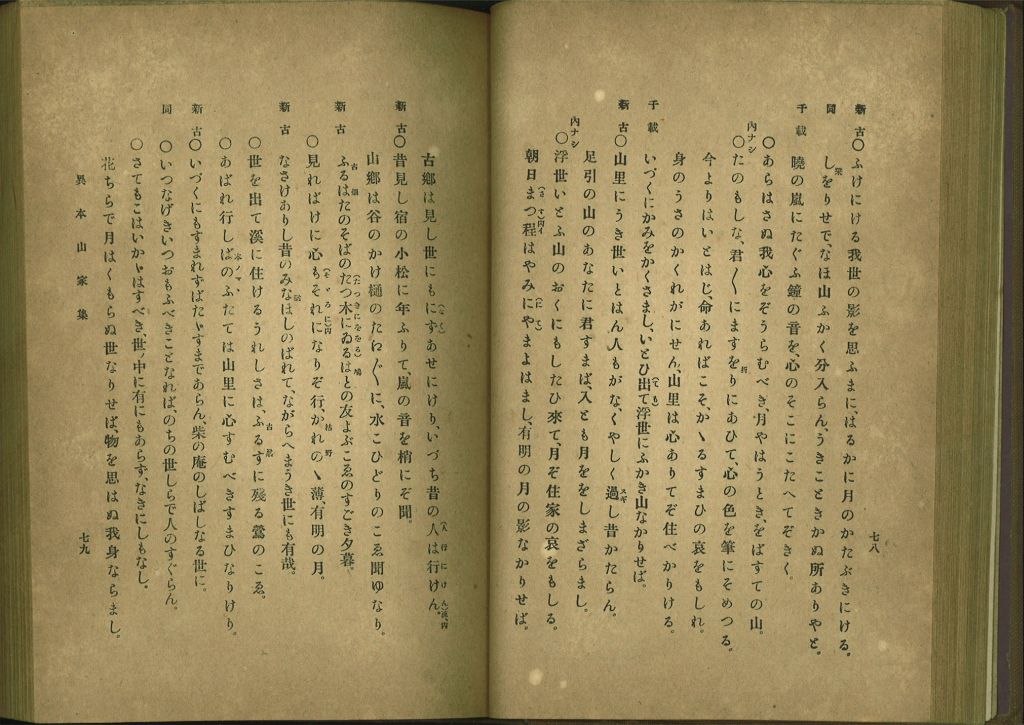 七八
新古○ふけにける我世の影を思ふまに、はるかに月のかたぶきにける。
同 しをりせで、なほ山ふかく分入らん、うきこときかぬ所ありやと。
千載 曉の嵐にたぐふ鐘の音を、心のそこにこたへてぞきく。
○あらはさぬ我心をぞうらむべき、月やはうとき、をばすての山。
內ナシ○たのもしな、君〱にますをりにあひて、心の色を筆にそめつる。
今よりはいとはじ、命あればこそ、かゝるすまひの哀をもしれ。
身のうさのかくれがにせん、山里は心ありてぞ住べかりける。
千載 いづくにかみをかくさまし、いとひ出て浮世にふかき山なかりせば。
新古○山里にうき世いとはん人もがな、くやしく過し昔かたらん。
足引の山のあなたに君すまば、入とも月ををしまざらまし。
內ナシ○浮世いとふ山のおくにもしたひ來て、月ぞ住家の哀をもしる。
朝日まつ程はやみにやまよはまし、有明の月の影なかりせば。
古鄕は見し世にもにずあせにけり、いづち昔の人は行けん。
新古○昔見し宿の小松に年ふりて、嵐の音を梢にぞ聞。
山鄕は谷のかけ樋のたわ〲に、水こひどりのこゑ聞ゆなり。
新古 ふるはたのそばのたつ木にゐるはとの友よぶこゑのすごき夕暮。
○見ればげに心もそれになりぞ行、かれのゝ薄、有明の月。
新古 なさけありし昔のみなほしのばれて、ながらへまうき世にも有哉。
○世を出て溪に住けるうれしさは、ふるすに殘る鶯のこゑ。
○あばれ行しばのふたては山里に心すむべきすまひなりけり。
新古○いづくにもすまれずばたゞすまであらん、柴の庵のしばしなる世に。
同 ○いつなげきいつおもふべきことなれば、のちの世しらで人のすぐらん。
○さてもこはいかゞはすべき、世ノ中に有にもあらず、なきにしもなし。
花ちらで月はくもらぬ世なりせば、物を思はぬ我身ならまし。
異本山家集
七九